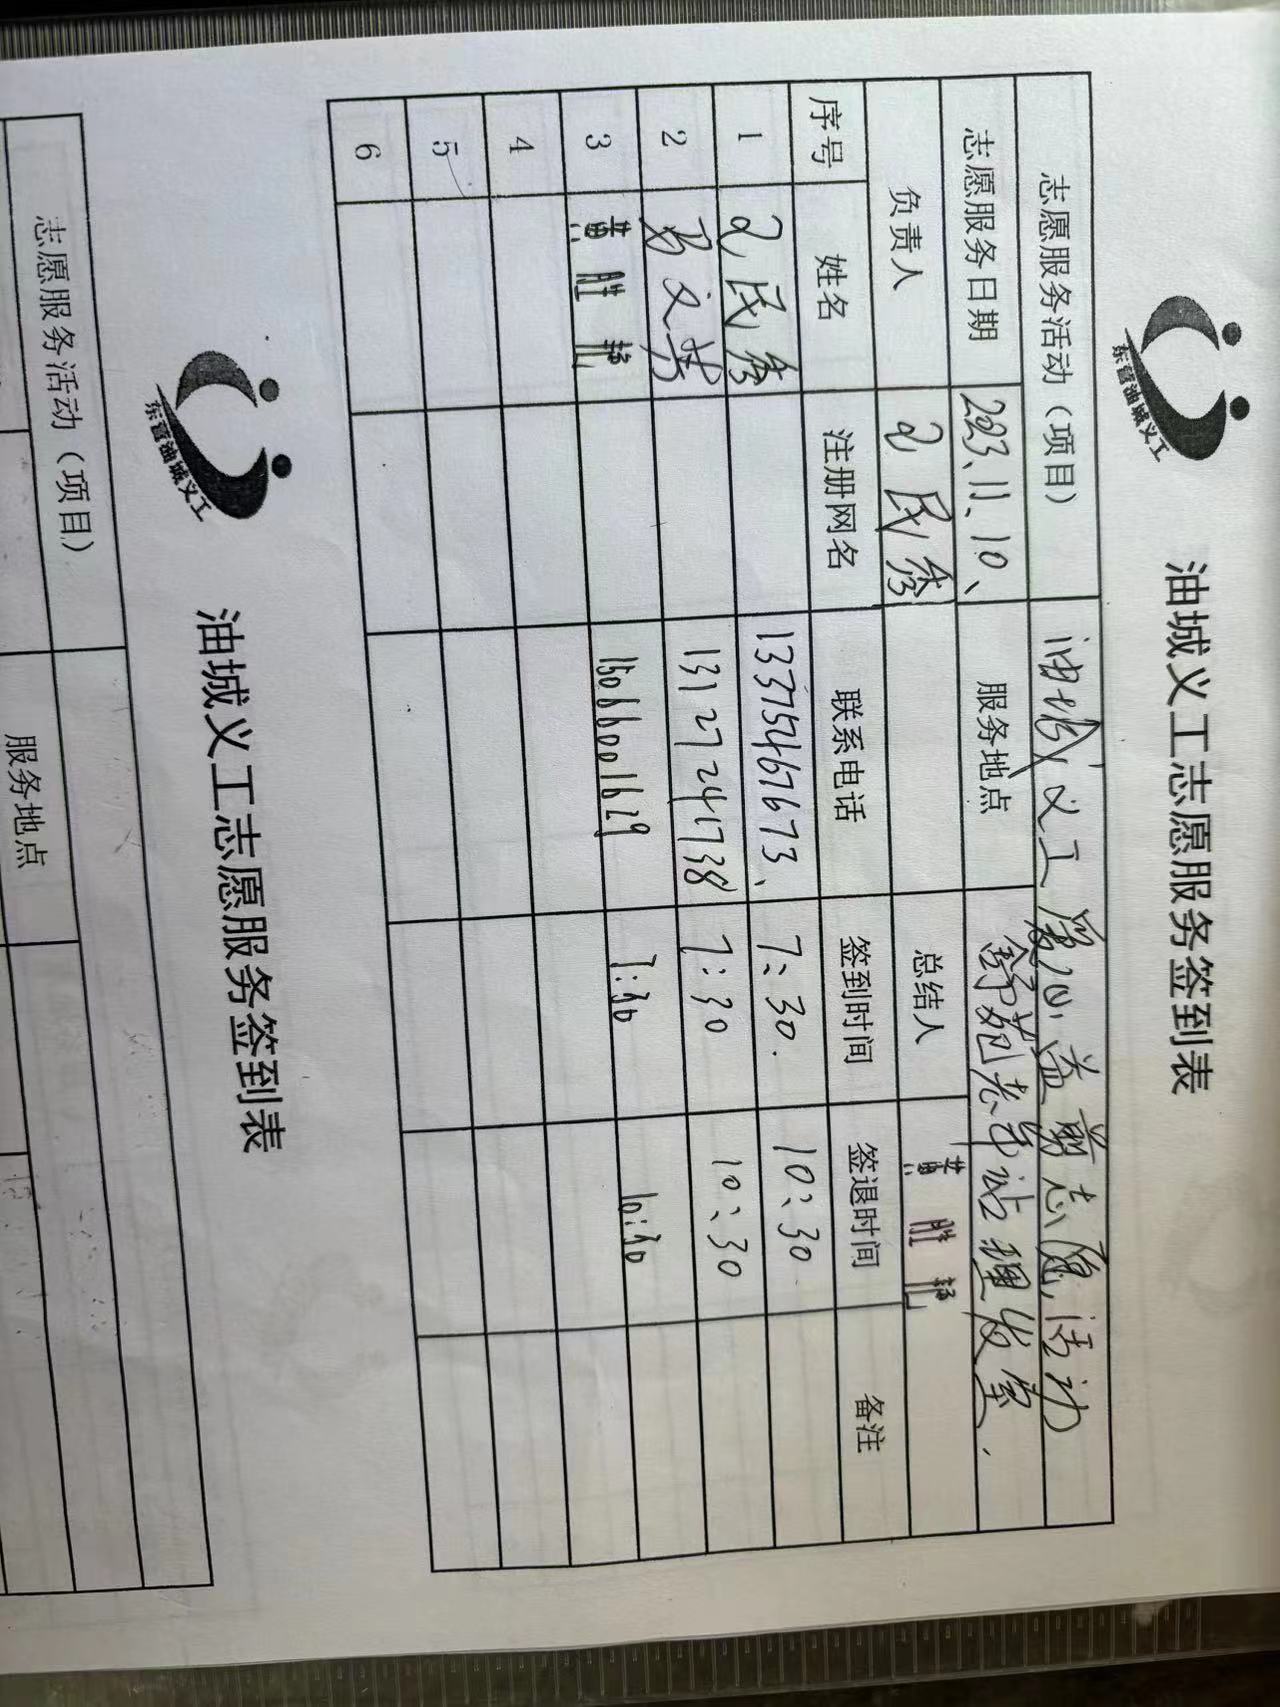 东营油城义工
油城义工志愿服务签到表
志愿服务活动（项目） 油城义工 爱心益剪志愿活动
志愿服务日期 2023、11、10、 服务地点 舒苑老年站理发室.
负责人 民秀 总结人 黄胜艳
序号 姓名 注册网名 联系电话 签到时间 签退时间 备注
1 民秀 13375467673、 7:30. 10:30.
2 文芳 13127241738 7:30 10:30
3 黄胜艳 15066001629 7:30 10:30
4
5
6
东营油城义工
油城义工志愿服务签到表
志愿服务活动（项目）
服务地点